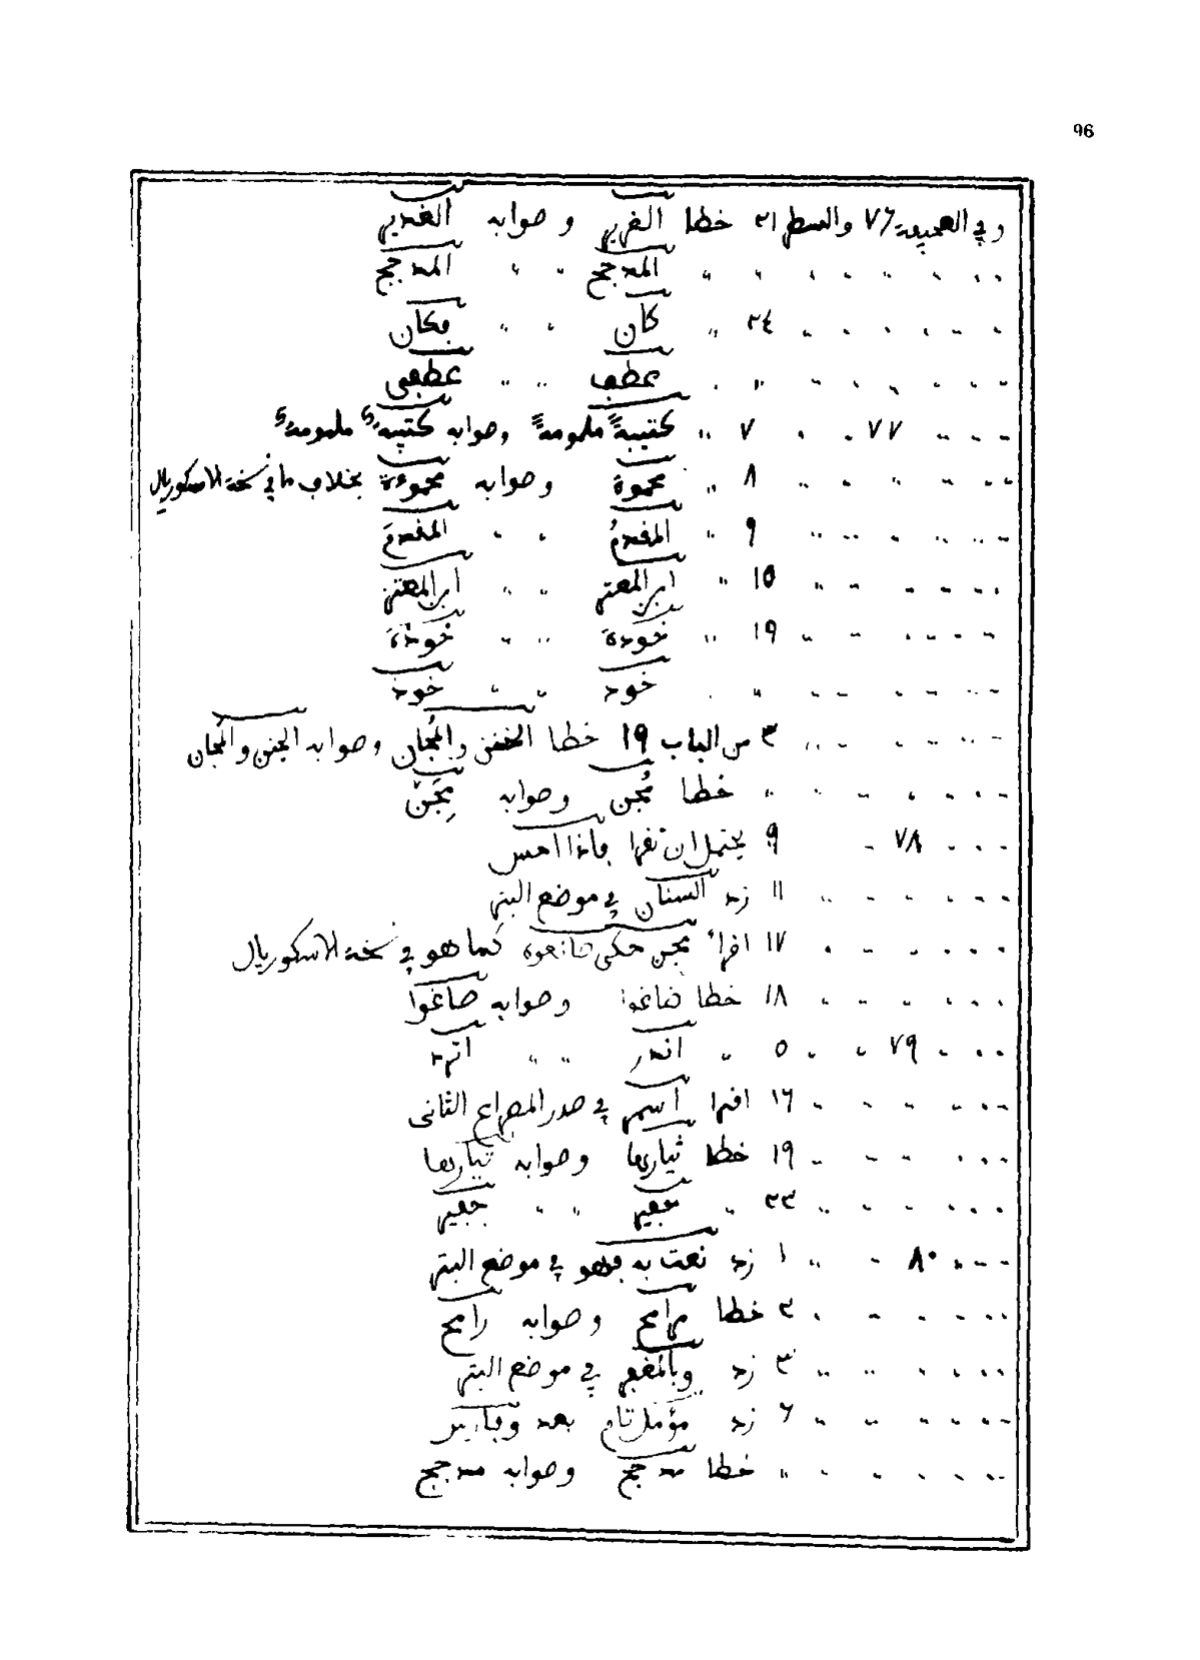 96
وفي الصحيفة ٧٦ والسطر ٢١ خطا الغرير وصوابه الغدير
" " " " " " " المدجج " " المدجج
" " " " " " ٢٤ " كان " " فكان
" " " " " " " " عطف " " عطفى
" " " ٧٧ " " ٧ " كتيبةً ملمومةً وصوابه كتيبةٌ ملمومةٌ
" " " " " " ٨ " محموة وصوابه محموءة بخلاف ما في نسخة الاسكوريال
" " " " " " ٩ " المفدمُ " " المفدمَ
" " " " " " ١٥ " ابر المعتز " " ابن المعتز
" " " " " " ١٩ " خودة " " خوذة
" " " " " " " " خود " " خوذ
" " " " " " ٣ من الباب ١٩ خطا الخفن والمُجان وصوابه الجنن والمَجان
" " " " " " " خطا مُجن وصوابه مِجَنّ
" " " ٧٨ " ٩ يحتمل ان تقرا فاذا امس
" " " " " " ١١ زد السنان في موضع البتر
" " " " " " ١٧ اقرأ مجن حكى صانعوه كما هو في نسخة الاسكوريال
" " " " " " ١٨ خطا فماغوا وصوابه صاغوا
" " " ٧٩ " " ٥ " اندر " " اترد
" " " " " " ١٦ اقرا اسمر في صدر المصراع الثانى
" " " " " " ١٩ خطا ثيارها وصوابه تيارها
" " " " " " ٢٣ " عفير " " جفير
" " " ٨٠ " " ١ زد نعت به فهو في موضع البتر
" " " " " " ٢ خطا برامح وصوابه رامح
" " " " " " ٣ زد وبالمغفر في موضع البتر
" " " " " " ٦ زد مؤمل تام بعد
" " " " " " " خطا مدجج وصوابه مدجج